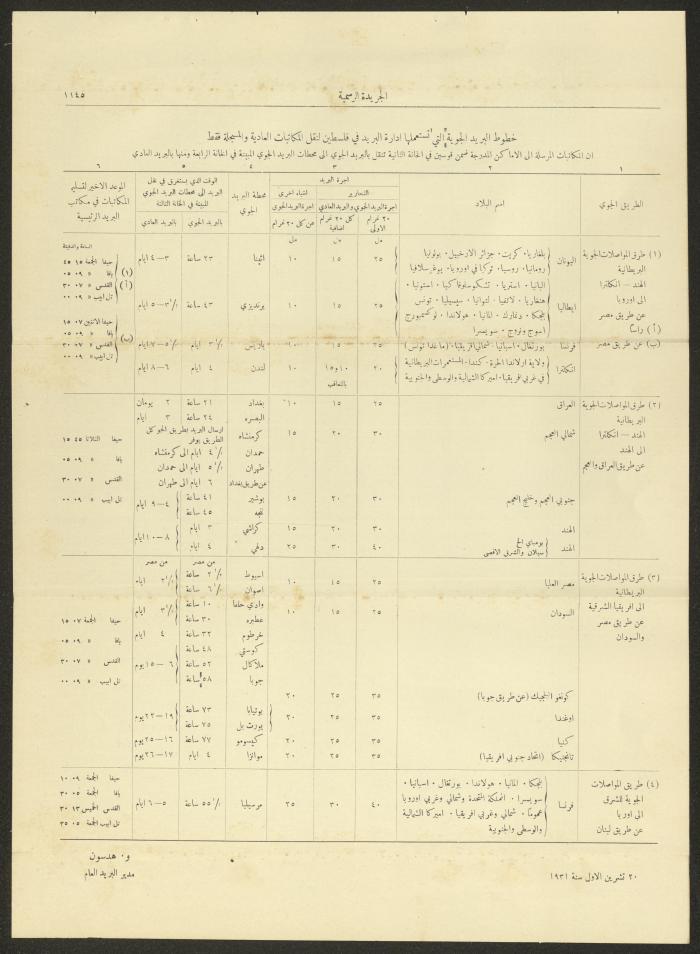 الجريدة الرسمية
١١٤٥
خطوط البريد الجوية التي تستعملها ادارة البريد في فلسطين لنقل المكاتبات العادية والمسجلة فقط
ان المكاتبات المرسلة الى الاماكن المدرجة ضمن قوسين في الخانة الثانية تنقل بالبريد الجوي الى محطات البريد الجوي المبينة في الخانة الرابعة ومنها بالبريد العادي
١ ٢ ٣ ٤ ٥ ٦
الطريق الجوي
اسم البلاد
اجرة البريد
التحارير
اجرة البريد الجوي والبريد العادي
٢٠ غرام الاولى
كل ٢٠ غرام اضافية
اشياء اخرى
اجرة البريد الجوي
عن كل ٢٠ غرام
محطة البريد الجوي
الوقت الذي يستغرق في نقل
البريد الى محطات البريد الجوي
المبينة في الخانة الثالثة
بالبريد الجوي
بالبريد العادي
الموعد الاخير لتسليم
المكاتبات في مكاتب
البريد الرئيسية
مل مل مل
الساعة والدقيقة
(١) طرق المواصلات الجوية
البريطانية
الهند — انكلترا
الى اوروبا
عن طريق مصر
(أ) رأساً
(ب) عن طريق مصر
اليونان
بلغاريا · كريت · جزائر الارخبيل · بولونيا
رومانيا · روسيا · تركيا في اوروبا · يوغوسلافيا
٢٥ ١٥ ١٠ اثينا ٢٣ ساعة ٣—٤ ايام
ايطاليا
البانيا · استريا · تشكوسلوفاكيا · استونيا ·
هنغاريا · لاتفيا · لتوانيا · سيسيليا · تونس
بلجكا · دنمارك · المانيا · هولاندا · لوكسمبورج
اسوج ونروج · سويسرا
٢٥ ١٥ ١٠ برنديزي ٤٣ ساعة
فرنسا
بورتغال · اسبانيا · شمالي افريقيا · (ما عدا تونس)
٢٥ ١٥ ١٠ باريس
انكلترا
ولاية ارلاندا الحرة · كندا · المستعمرات البريطانية
في غربي افريقيا · اميركا الشمالية والوسطى والجنوبية
٢٠ ١٠ و ١٥ بالتعاقب ١٠ لندن ٤ ايام ٦—٨ ايام
حيفا الجمعة ١٥ ٤٥
يافا » ٠٩ ٠٥
القدس » ٠٧ ٣٠
تل ابيب » ٠٩ ٠٠
حيفا الاثنين ٠٧ ١٥
يافا » ٠٩ ٠٥
القدس » ٠٧ ٣٠
تل ابيب » ٠٩ ٠٠
(٢) طرق المواصلات الجوية
البريطانية
الهند — انكلترا
الى الهند
عن طريق العراق والعجم
العراق ٢٥ ١٥ ١٠ بغداد ٢١ ساعة ٢ يومان
البصره ٢٤ ساعة ٣ ايام
شمالي العجم ٣٠ ٢٠ ١٥ كرمنشاه
همدان
طهران
عن طريق بغداد
ارسال البريد بطريق الجو كل
الطريق يوفر
٤ ١/٢ ايام الى كرمنشاه
٥ ١/٢ ايام الى حمدان
٦ ايام الى طهران
جنوبي العجم وخليج العجم ٣٠ ٢٠ ١٥ بوشير ٤١ ساعة
لنجه ٤٥ ساعة
٤—٩ ايام
الهند ٣٠ ٢٠ ١٥ كراشي ٣ ايام
الهند
بومباي الخ
سيلان والشرق الاقصى
٤٠ ٣٠ ٢٥ دلهي ٤ ايام
٨—١٠ ايام
حيفا الثلاثا ٤٥ ١٥
يافا » ٠٩ ٠٥
القدس » ٠٧ ٣٠
تل ابيب » ٠٩ ٠٠
(٣) طرق المواصلات الجوية
البريطانية
الى افريقيا الشرقية
عن طريق مصر
والسودان
من مصر من مصر
مصر العليا ٢٥ ١٥ ١٠ اسيوط ٢ ١/٢ ساعة
اصوان ٦ ١/٢ ساعة
السودان ٢٥ ١٥ ١٠ وادي حلفا ١٠ ساعة
عطبره ٣٠ ساعة
خرطوم ٣٢ ساعة ٤ ايام
كوستي ٤٨ ساعة
ملاكال ٥٢ ساعة
جوبا ٥٨ ساعة
٦—١٥ يوم
كونغو البلجيك (عن طريق جوبا) ٣٥ ٢٥ ٢٠
اوغندا ٣٥ ٢٥ ٢٠ بوتيابا ٧٣ ساعة
بورت بل ٧٥ ساعة
١٩—٢٢ يوم
كنيا ٣٥ ٢٥ ٢٠ كيسومو ٧٧ ساعة ١٦—٢٥ يوم
تانجنيكا (اتحاد جنوبي افريقيا) ٣٥ ٢٥ ٢٠ موانزا ٤ ايام ١٧—٢٦ يوم
حيفا الجمعة ٠٧ ١٥
يافا » ٠٩ ٠٥
القدس » ٠٧ ٣٠
تل ابيب » ٠٩ ٠٠
(٤) طريق المواصلات
الجوية للشرق
الى اوربا
عن طريق لبنان
فرنسا
بلجكا · المانيا · هولاندا · بورتغال · اسبانيا ·
سويسرا · المملكة المتحدة وشمالي وغربي اوروبا
عموماً · شمالي وغربي افريقيا · اميركا الشمالية
والوسطى والجنوبية
٤٠ ٣٠ ٢٥ مرسيليا ٥٥ ١/٢ ساعة ٥—٦ ايام
حيفا الجمعة ٠٩ ١٠
يافا الجمعة ٠٥ ٣٠
القدس الخميس ١٣ ٣٠
تل ابيب الجمعة ٠٥ ٣٥
٢٠ تشرين الاول سنة ١٩٣١
و · هدسون
مدير البريد العام